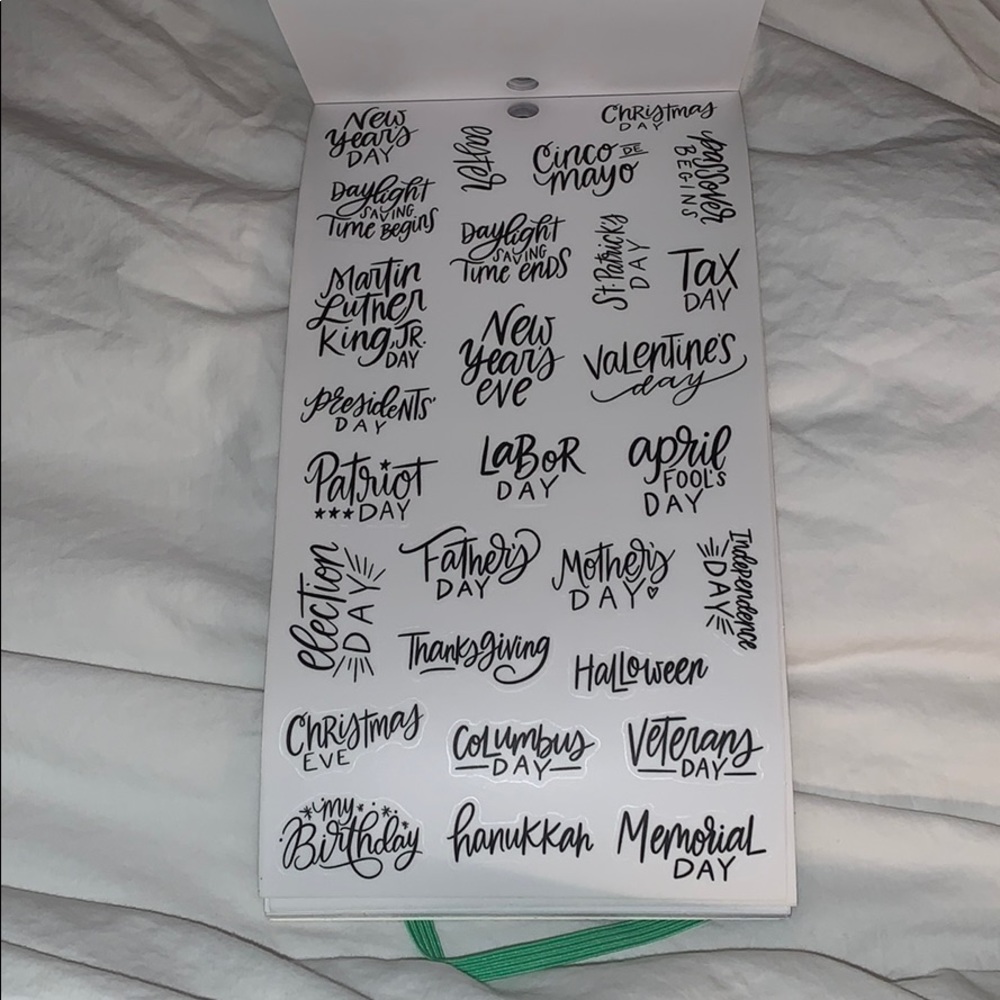 New
Year's
DAY
easter
Cinco DE
mayo
Christmas
DAY
passover
BEGINS
Daylight
SAVING
Time Begins
Daylight
SAVING
Time ENDS
St. Patricks
DAY
Tax
DAY
Martin
Luther
King, JR.
DAY
New
Year's
eve
Valentine's
day
presidents'
DAY
Patriot
DAY
LaBoR
DAY
april
FOOL'S
DAY
election
DAY
Father's
DAY
Mother's
DAY
Independence
DAY
Thanksgiving
Halloween
Christmas
EVE
Columbus
DAY
Veterans
DAY
my
Birthday
hanukkah
Memorial
DAY